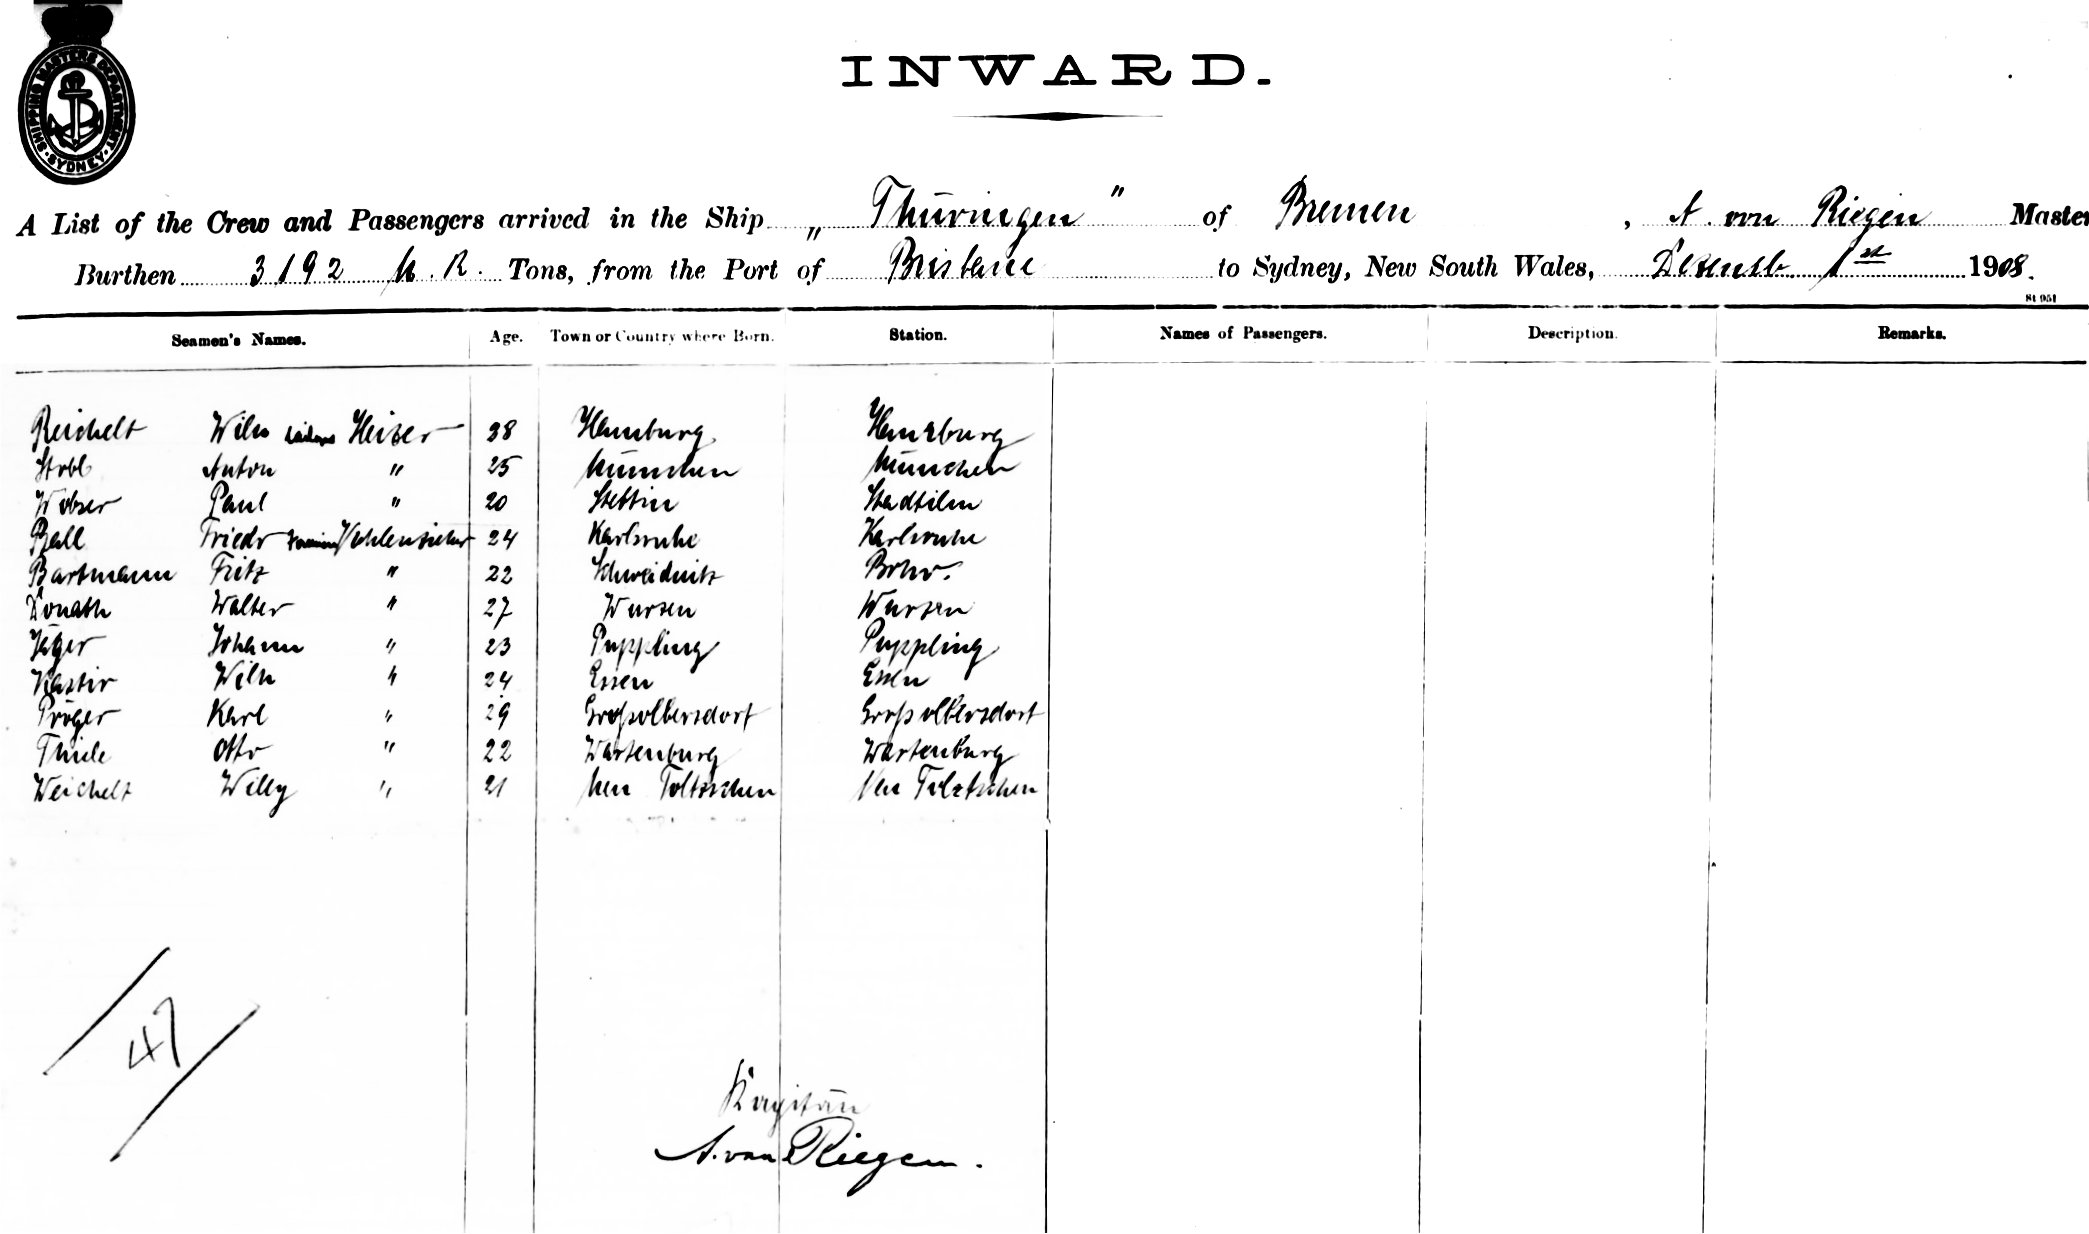 SHIPPING MASTERS DEPARTMENT · SYDNEY ·
INWARD.
A List of the Crew and Passengers arrived in the Ship „ Thüringen " of Bremen , A. von Riegen Master
Burthen 3192 N. R. Tons, from the Port of Brisbane to Sydney, New South Wales, Dezemb 1st 1908.
St 951
Seamen's Names. Age. Town or Country where Born. Station. Names of Passengers. Description. Remarks.
Reichelt Wilh Heizer 38 Hamburg Hamburg
Strobl Anton " 25 München München
Wobser Paul " 20 Stettin Stadtilm
Ball Friedr Kohlenzieher 24 Karlsruhe Karlsruhe
Bartmann Fritz " 22 Schweidnitz
Donath Walter " 27 Wurzen Wurzen
Jäger Johann " 23 Puppling Puppling
Wilh " 24 Essen Essen
Pröger Karl " 29 Großolbersdorf Großolbersdorf
Thiele Otto " 22 Wartenburg Wartenburg
Weichelt Willy " 21 Neu
47
Kapitän
A. von Riegen.